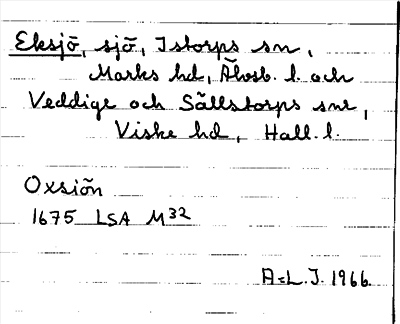 Eksjö, sjö, Istorps sn,
Marks hd, Älvsb. l. och
Veddige och Sällstorps snr,
Viske hd, Hall. l.
Oxsiön
1675 LSA M32
A-L.J. 1966